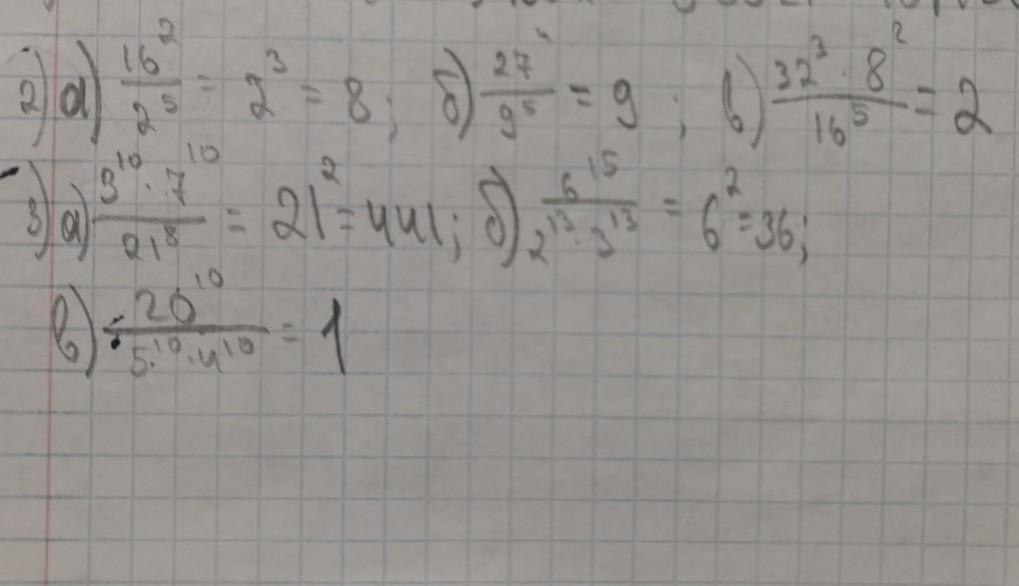 2) а) 16²/2⁵ = 2³ = 8; б) 27⁴/9⁵ = 9; в) 32³ · 8²/16⁵ = 2
3) а) 3¹⁰ · 7¹⁰/21⁸ = 21² = 441; б) 6¹⁵/2¹³ · 3¹³ = 6² = 36;
в) 20¹⁰/5¹⁰ · 4¹⁰ = 1